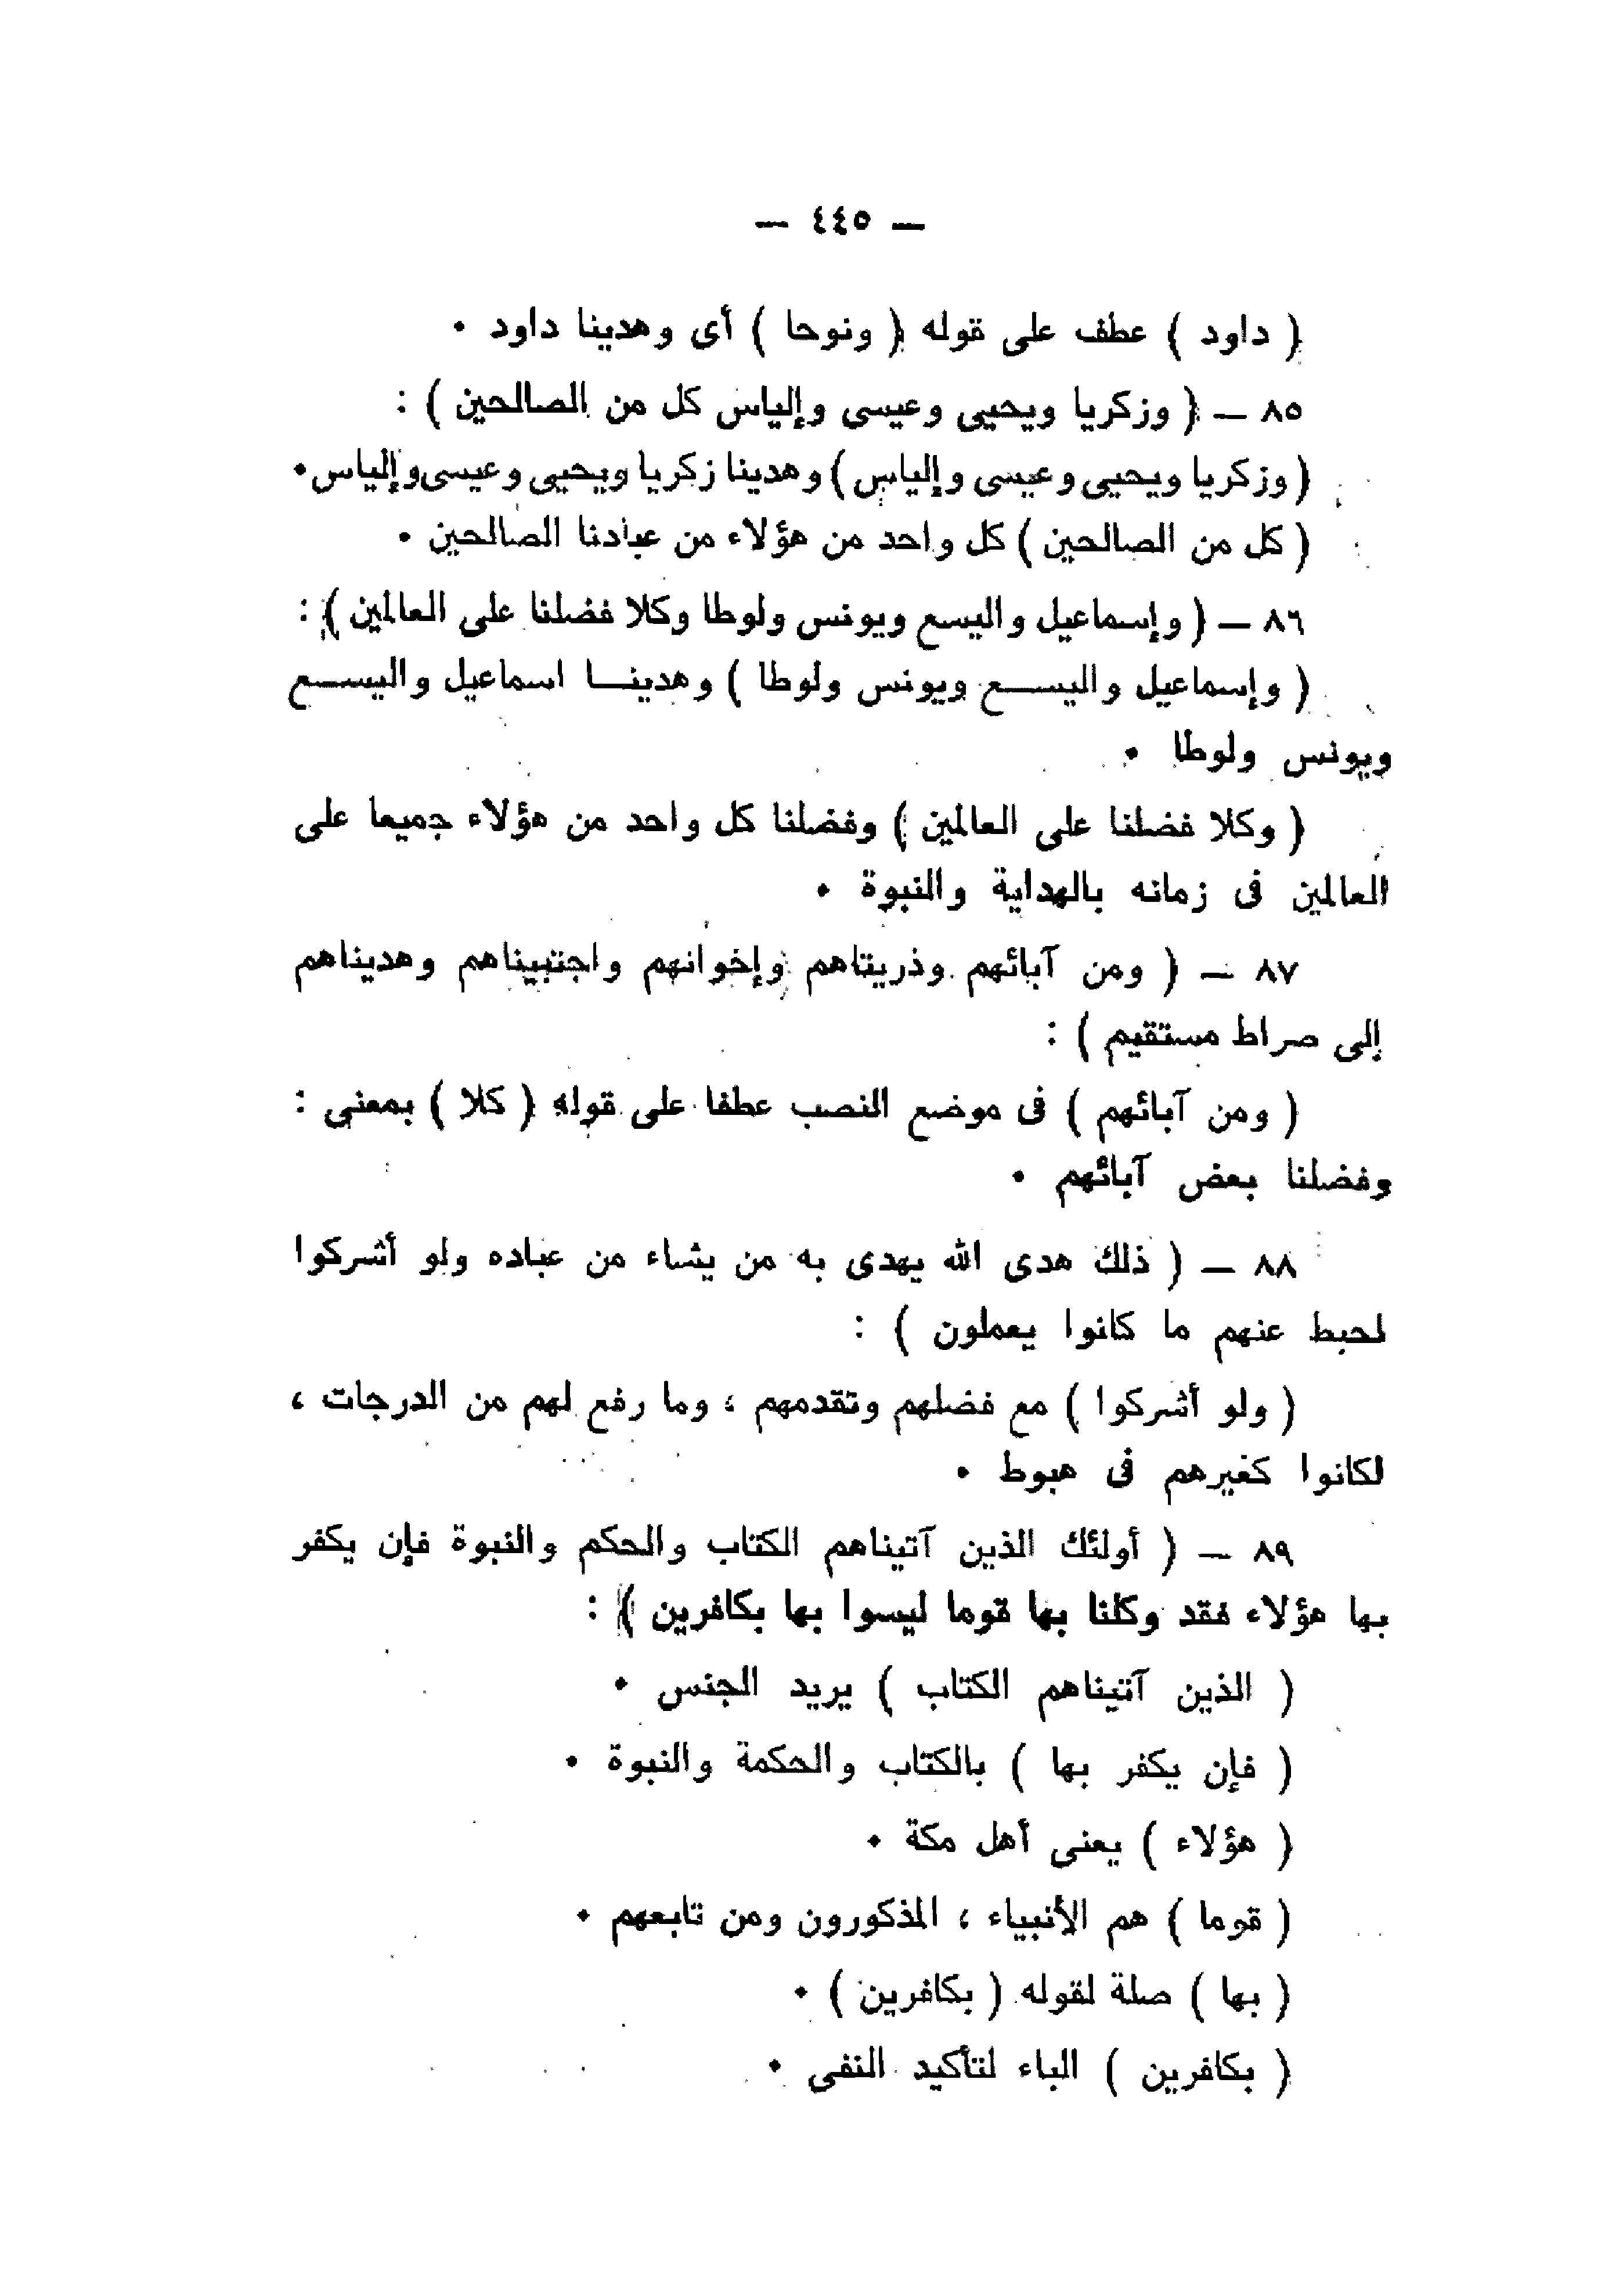 — ٤٤٥ —
( داود ) عطف على قوله ( ونوحا ) أى وهدينا داود .
٨٥ — ( وزكريا ويحيى وعيسى وإلياس كل من الصالحين ) :
( وزكريا ويحيى وعيسى وإلياس ) وهدينا زكريا ويحيى وعيسى وإلياس .
( كل من الصالحين ) كل واحد من هؤلاء من عبادنا الصالحين .
٨٦ — ( وإسماعيل واليسع ويونس ولوطا وكلا فضلنا على العالمين ) :
( وإسماعيل واليســـع ويونس ولوطا ) وهدينـــا اسماعيل واليســـع
ويونس ولوطا .
( وكلا فضلنا على العالمين ) وفضلنا كل واحد من هؤلاء جميعا على
العالمين فى زمانه بالهداية والنبوة .
٨٧ — ( ومن آبائهم وذريتاهم وإخوانهم واجتبيناهم وهديناهم
إلى صراط مستقيم ) :
( ومن آبائهم ) فى موضع النصب عطفا على قوله ( كلا ) بمعنى :
وفضلنا بعض آبائهم .
٨٨ — ( ذلك هدى الله يهدى به من يشاء من عباده ولو أشركوا
لحبط عنهم ما كانوا يعملون ) :
( ولو أشركوا ) مع فضلهم وتقدمهم ، وما رفع لهم من الدرجات ،
لكانوا كغيرهم فى هبوط .
٨٩ — ( أولئك الذين آتيناهم الكتاب والحكم والنبوة فإن يكفر
بها هؤلاء فقد وكلنا بها قوما ليسوا بها بكافرين ) :
( الذين آتيناهم الكتاب ) يريد الجنس .
( فإن يكفر بها ) بالكتاب والحكمة والنبوة .
( هؤلاء ) يعنى أهل مكة .
( قوما ) هم الأنبياء ، المذكورون ومن تابعهم .
( بها ) صلة لقوله ( بكافرين ) .
( بكافرين ) الباء لتأكيد النفى .